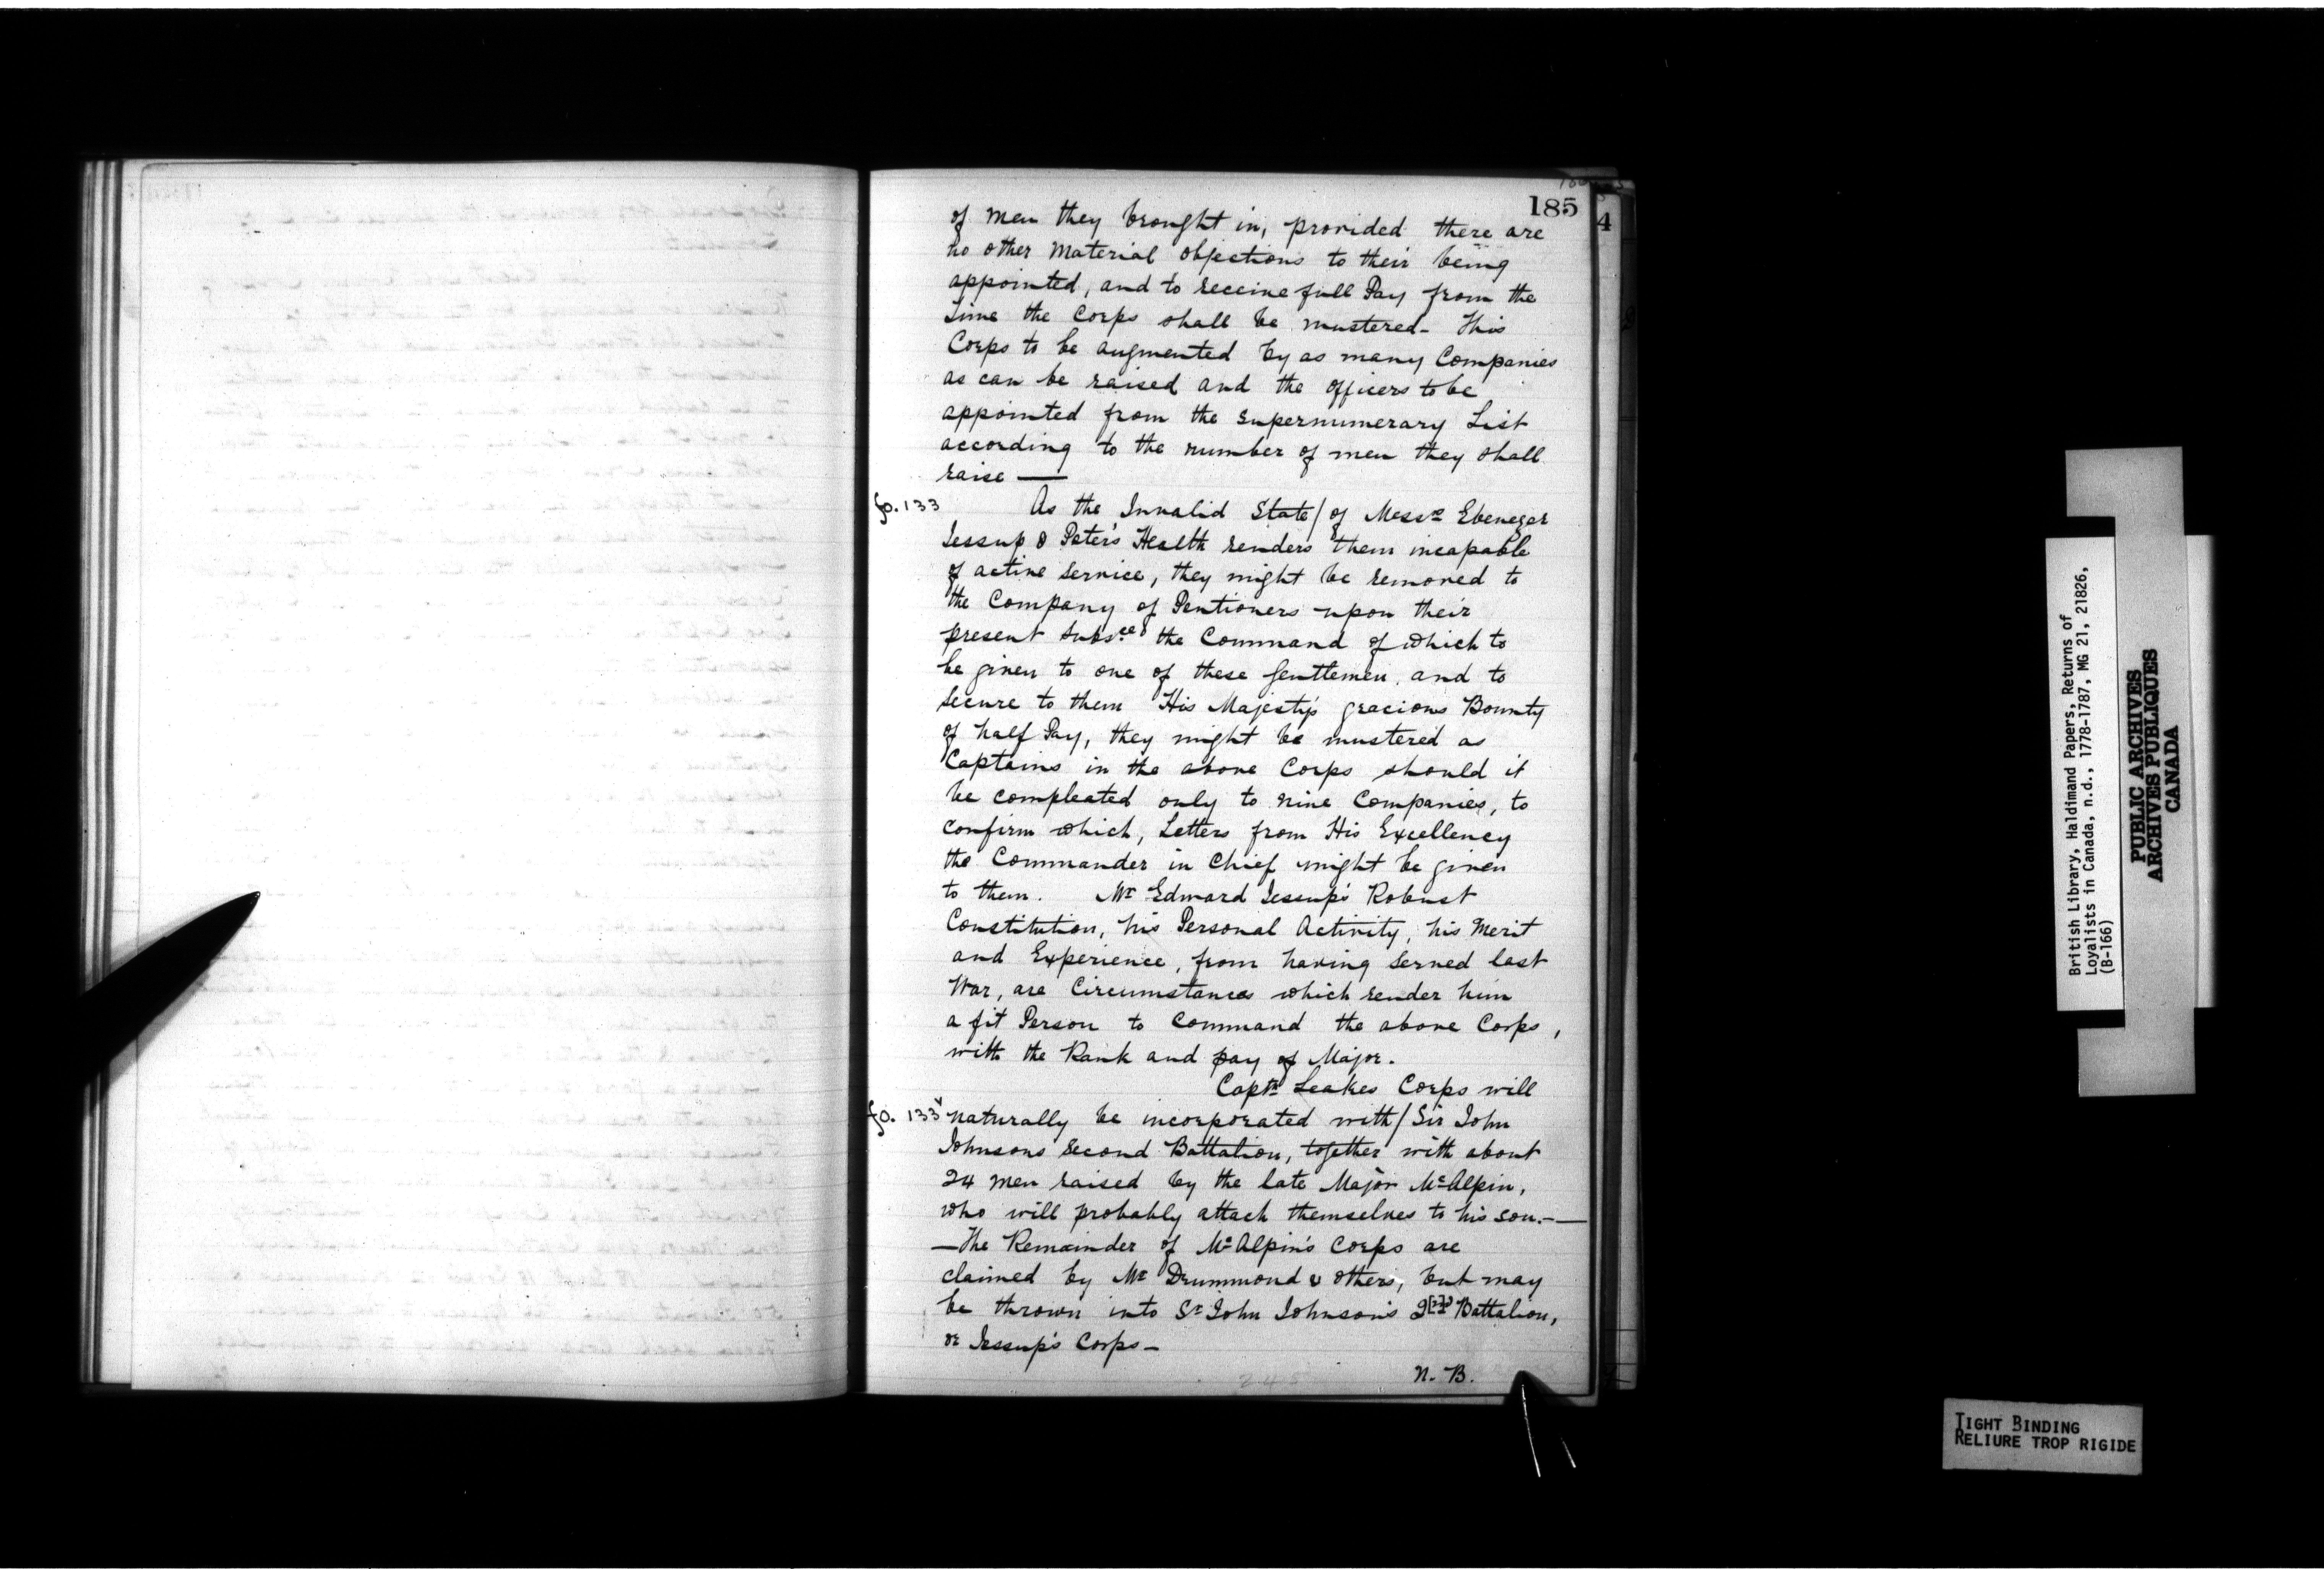 185
4
of men they brought in, provided there are
no other Material objections to their being
appointed, and to receive full Pay from the
Time the Corps shall be mustered - This
Corps to be augmented by as many Companies
as can be raised and the officers to be
appointed from the supernumerary List
according to the number of men they shall
raise —
fo. 133
As the Invalid State/ of Messrs Ebenezer
Jessup & Peter's Health renders them incapable
of active service, they might be removed to
the Company of Pentioners upon their
present subsce the Command of which to
be given to one of these Gentlemen, and to
secure to them His Majesty's gracious Bounty
of half Pay, they might be mustered as
Captains in the above Corps should it
be compleated only to nine Companies, to
confirm which, Letters from His Excellency
the Commander in Chief might be given
to them. Mr Edward Jessup's Robust
Constitution, his Personal Activity, his Merit
and Experience, from having served last
War, are Circumstances which render him
a fit Person to Command the above Corps,
with the Rank and pay of Major.
Captn Leakes Corps will
fo. 133v naturally be incorporated with/ Sir John
Johnsons second Battalion, together with about
24 men raised by the late Major McAlpin,
who will probably attach themselves to his son.-—
—The Remainder of McAlpin's Corps are
claimed by Mr Drummond & others, but may
be thrown into Sr John Johnson's 2[nd] Battalion,
or Jessup's Corps —
N. B.
245
British Library, Haldimand Papers, Returns of
Loyalists in Canada, n.d., 1778-1787, MG 21, 21826,
(B-166)
PUBLIC ARCHIVES
ARCHIVES PUBLIQUES
CANADA
TIGHT BINDING
RELIURE TROP RIGIDE